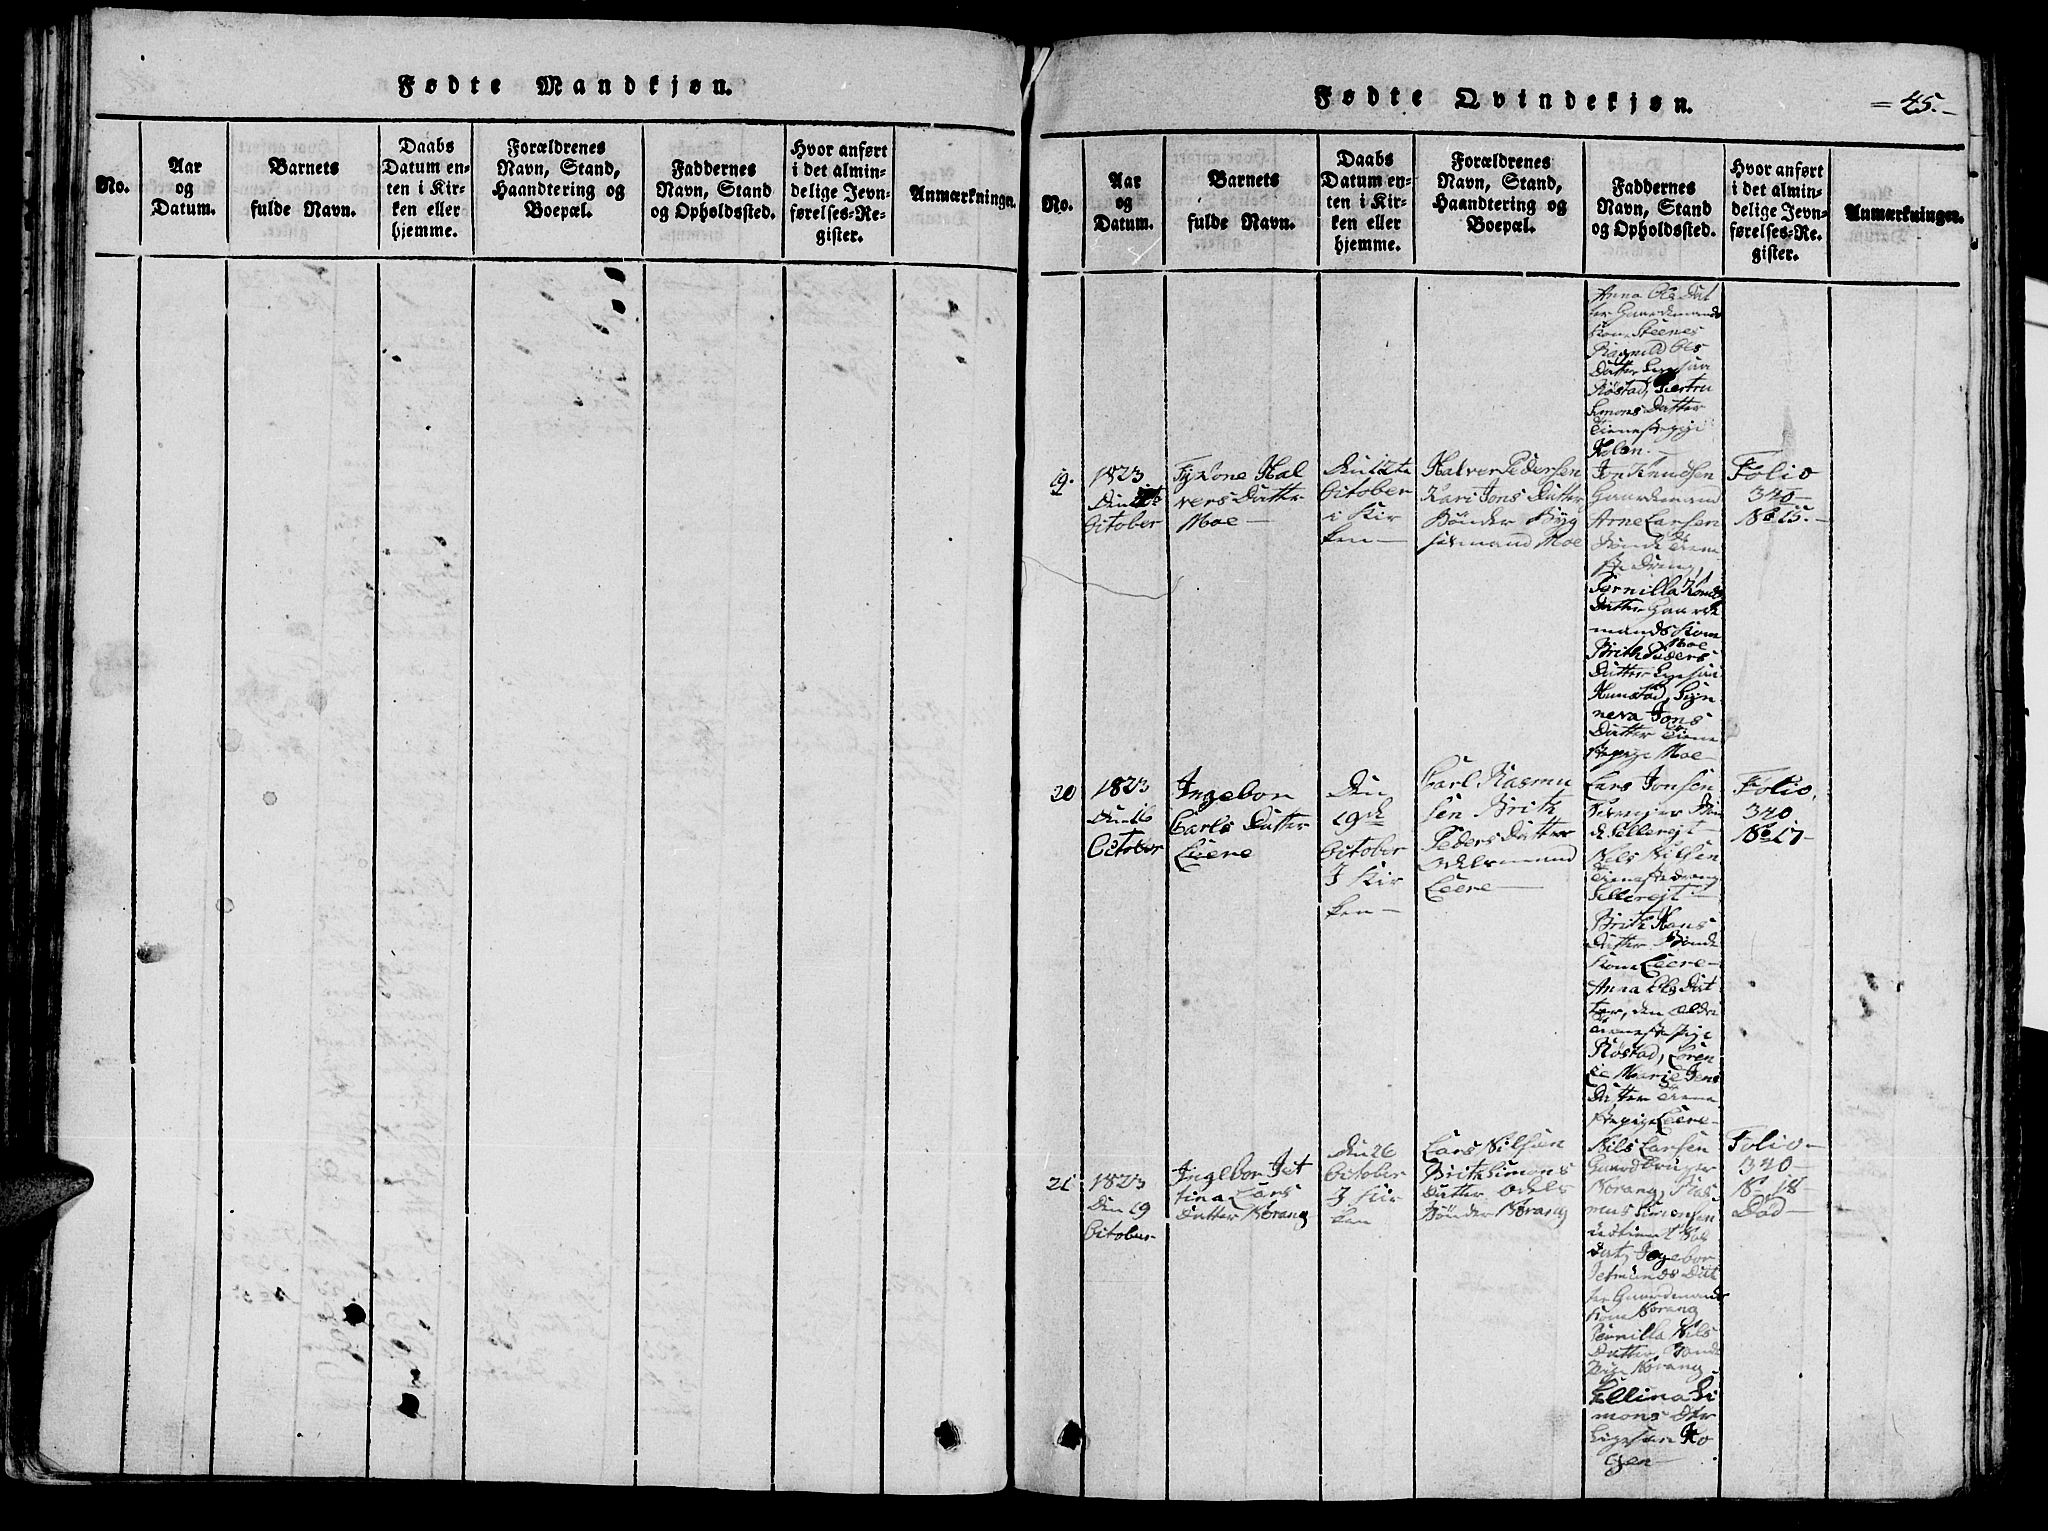 Fødte Mandkjøn.
No.
Aar
og
Datum.
Barnets
fulde Navn.
Daabs
Datum en-
ten i Kir-
ken eller
hjemme.
Forældrenes
Navn, Stand,
Haandtering og
Boepæl.
Faddernes
Navn, Stand
og Opholdssted.
Hvor anført
i det almin-
delige Jevn-
førelses-Re-
gister.
Anmærkninger.
Fødte Qvindekjøn.
=45.-
No.
Aar
og
Datum.
Barnets
fulde Navn.
Daabs
Datum en-
ten i Kir-
ken eller
hjemme.
Forældrenes
Navn, Stand,
Haandtering og
Boepæl.
Faddernes
Navn, Stand
og Opholdssted.
Hvor anført
i det almin-
delige Jevn-
førelses-Re-
gister.
Anmærkninger.
Anna Ols Dat
ter Gaardmands
Kone Steenes
Ragnild Ols
Datter
Røstad,
Simons Datter
19.
1823
Den
October
Hal
vers Datter
Moe—
Den 12te
October
i Kir
ken—
Halver Pedersen
Kari Jons Datter
Bønder Byg
selmand Moe
Jon Knudsen
Gaardmand
Arne Larsen
Bonde Tiene
ste Dreng,
Pernilla
Datter Gaard
mands Kone
Moe
Brithe Peders
Datter
Hunstad, Syn
neva Jons
Datter Tiene
ste pige Moe—
Folio
320—
No 15.—
20
1823
Den 16
October
Ingebor
Carls Datter
Leere
Den
19de
October
I Kir
ken—
Carl Rasmu
sen Brith
Peders Datter
Odelsmand
Leere—
Lars Jonsen
Nils Nilsen
Brithe Hans
Datter Bonde
Kone Leere—
Anna Ols Dat
ter, den ældre
Røstad, Loren
ce Marie Jens
Datter Tiene
ste pige Leere—
Folio
320
No 17—
21
1823
Den 19
October
Ingebor Jet
tina Lars
Datter Norang
Den 26
October
I Kir
ken
Lars Nilsen
Brithe Simons
Datter Odels
Bønder Norang
Nils Larsen
Gaardbruger
Norang, Ras
mus Simonsen
Sol
dat, Ingebor
Jetmunds Dat
ter Gaardmands
Kone Norang
Pernilla Nils
Datter,
Pige Norang
Ellina Si
mons Dtr
Folio—
320—
No 18—
Død—